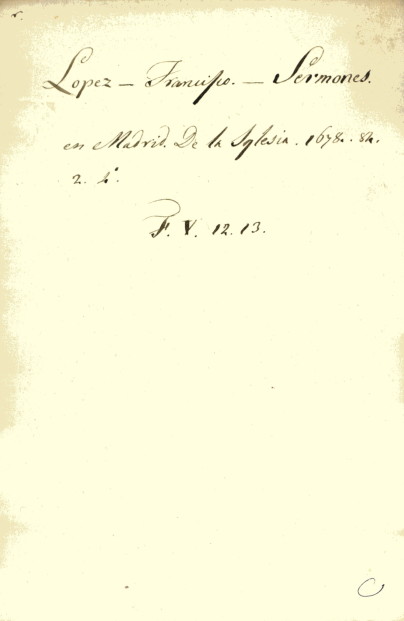 Lopez — Francisco. — Sermones.
en Madrid. De la Yglesia. 1678. 84.
2. 4º.
F. V. 12. 13.